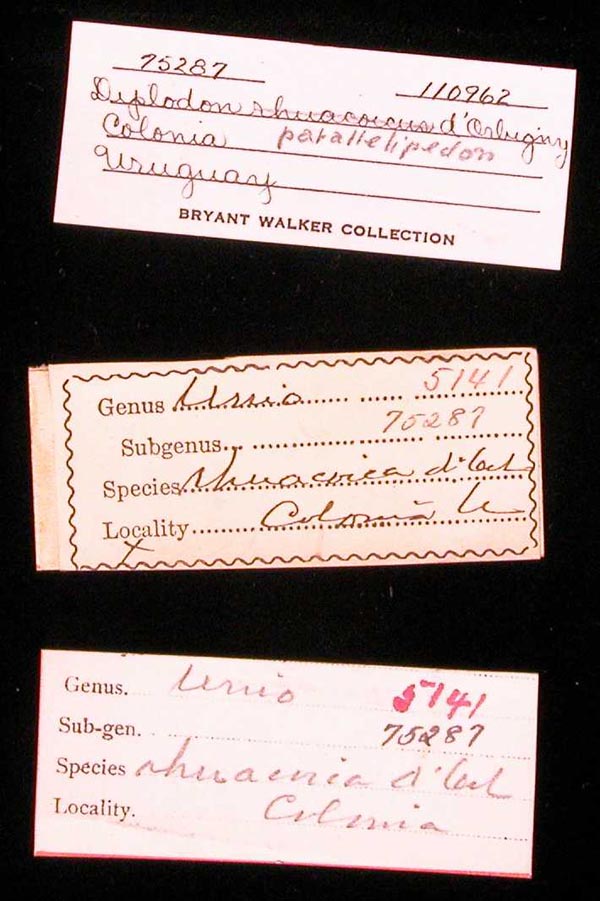 75287 110962
Diplodon rhuacoicus d'Orbigny
Colonia parallelipedon
Uruguay
BRYANT WALKER COLLECTION
Genus Unio 5141
Subgenus 75287
Species rhuacoica d'
Locality Colonia U
Genus. Unio 5141
Sub-gen. 75287
Species rhuacoica d'
Locality. Colonia